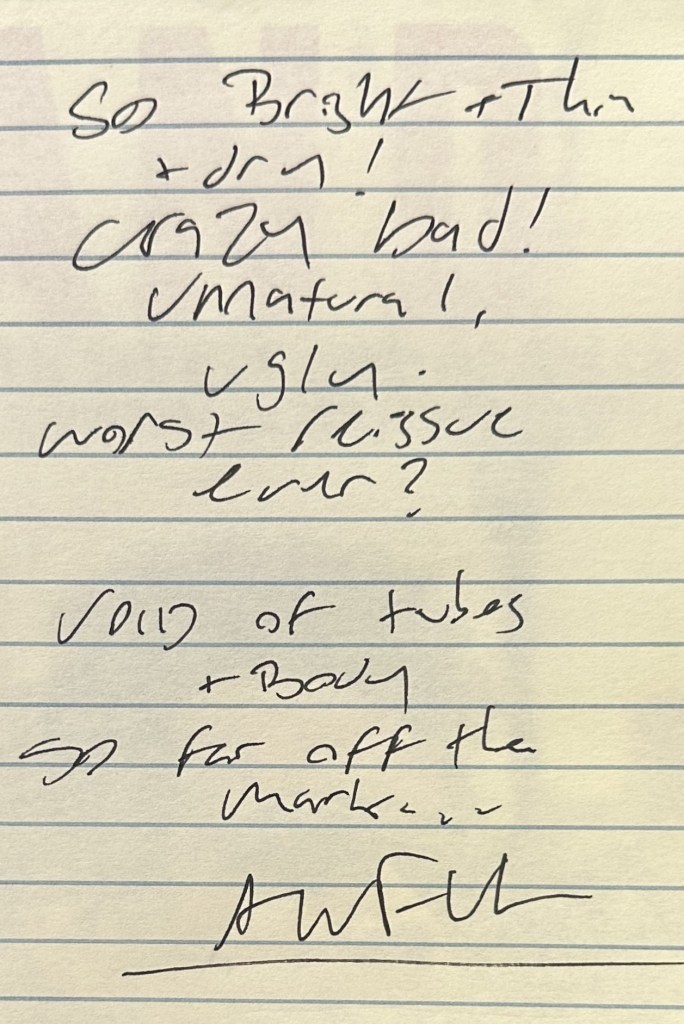 So Bright + Thin
+ dry!
crazy bad!
Unnatural,
ugly.
worst reissue
ever?
VOID of tubes
+ Body
so far off the
mark...
AWFUL